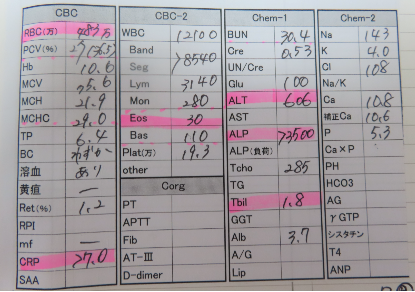 CBC
RBC(万) 483万
PCV(%) (36.5)
Hb 10.6
MCV 75.6
MCH 21.9
MCHC 29.0
TP 6.4
BC わずか
溶血 あり
黄疸 ー
Ret(%) 1.2
RPI
mf ー
CRP 27.0
SAA
CBC-2
WBC 12100
Band
Seg 8540
Lym 3140
Mon 280
Eos 30
Bas 110
Plat(万) 19.3
other
Corg
PT
APTT
Fib
AT-III
D-dimer
Chem-1
BUN 30.4
Cre 0.53
UN/Cre
Glu 100
ALT 606
AST
ALP >3500
ALP(負荷)
Tcho 285
TG
Tbil 1.8
GGT
Alb 3.7
A/G
Lip
Chem-2
Na 143
K 4.0
Cl 108
Na/K
Ca 10.8
補正Ca 10.6
P 5.3
Ca×P
PH
HCO3
AG
γGTP
シスタチン
T4
ANP